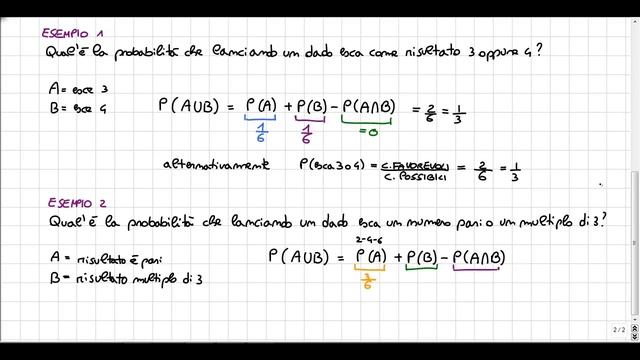 ESEMPIO 1
Qual'è la probabilità che lanciando un dado esca come risultato 3 oppure 4?
A = esce 3
B = esce 4
P(A∪B) = P(A) + P(B) - P(A∩B) = 2/6 = 1/3
1/6 1/6 =0
alternativamente P(esca 3 o 4) = C. FAVOREVOLI / C. POSSIBILI = 2/6 = 1/3
ESEMPIO 2
Qual'è la probabilità che lanciando un dado esca un numero pari o un multiplo di 3?
2-4-6
A = risultato è pari
B = risultato multiplo di 3
P(A∪B) = P(A) + P(B) - P(A∩B)
3/6
2/2